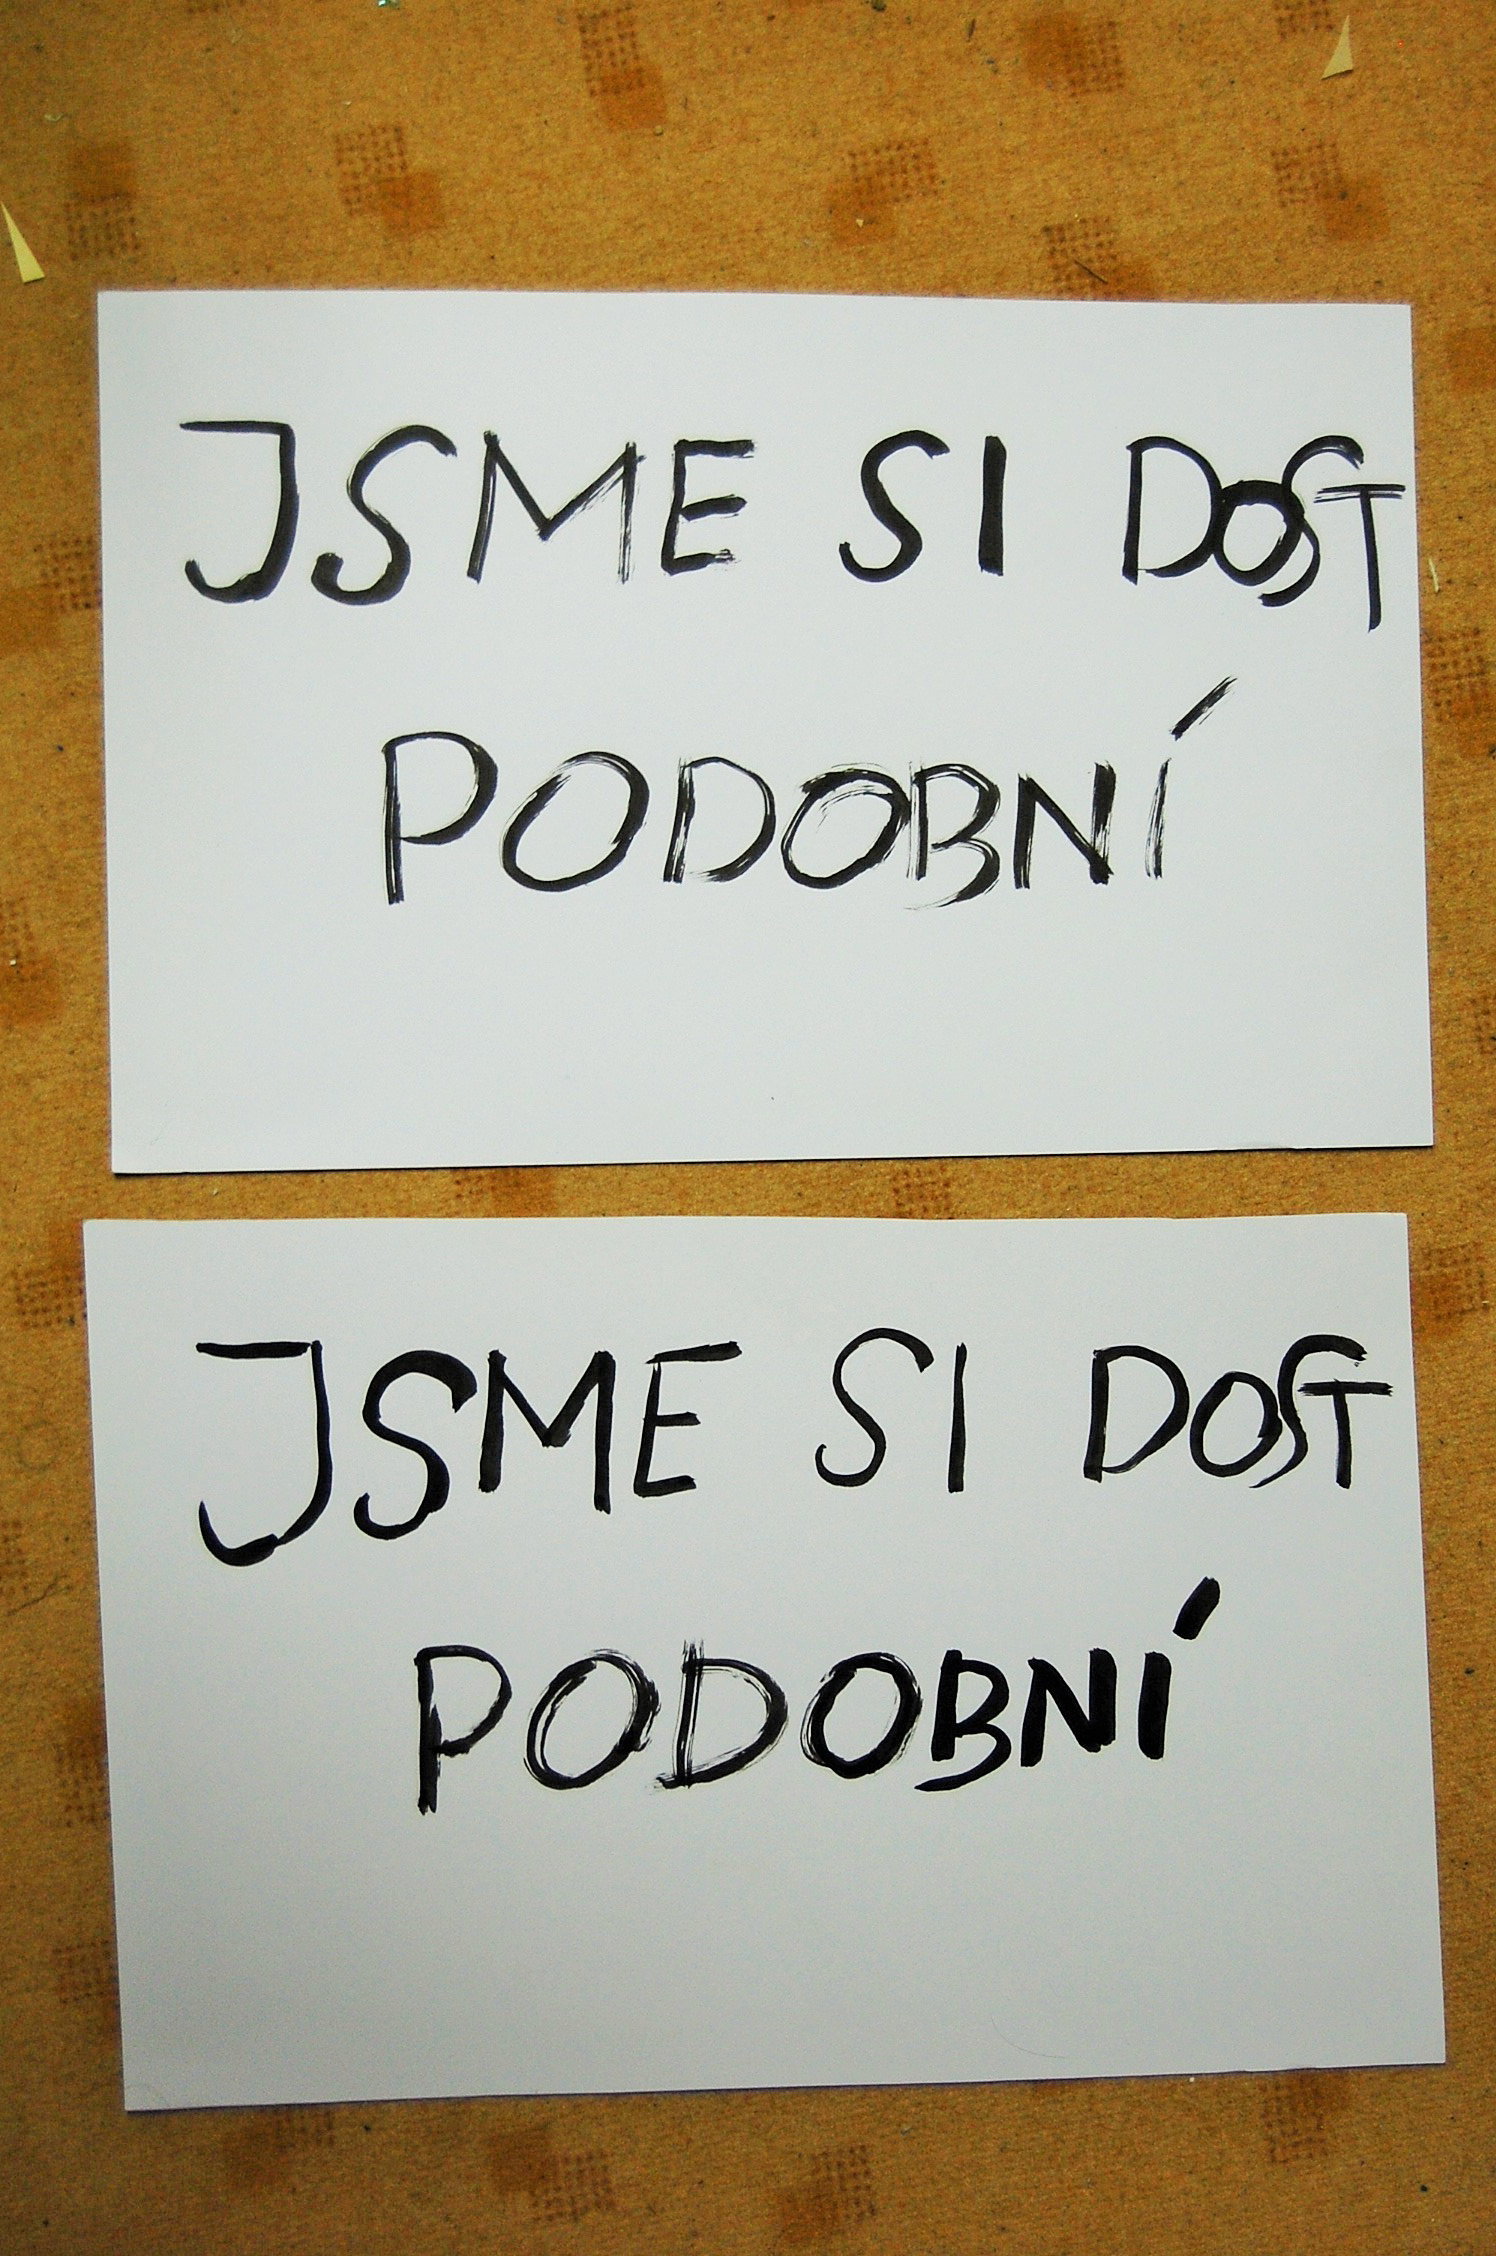 JSME SI DOST
PODOBNÍ
JSME SI DOST
PODOBNÍ